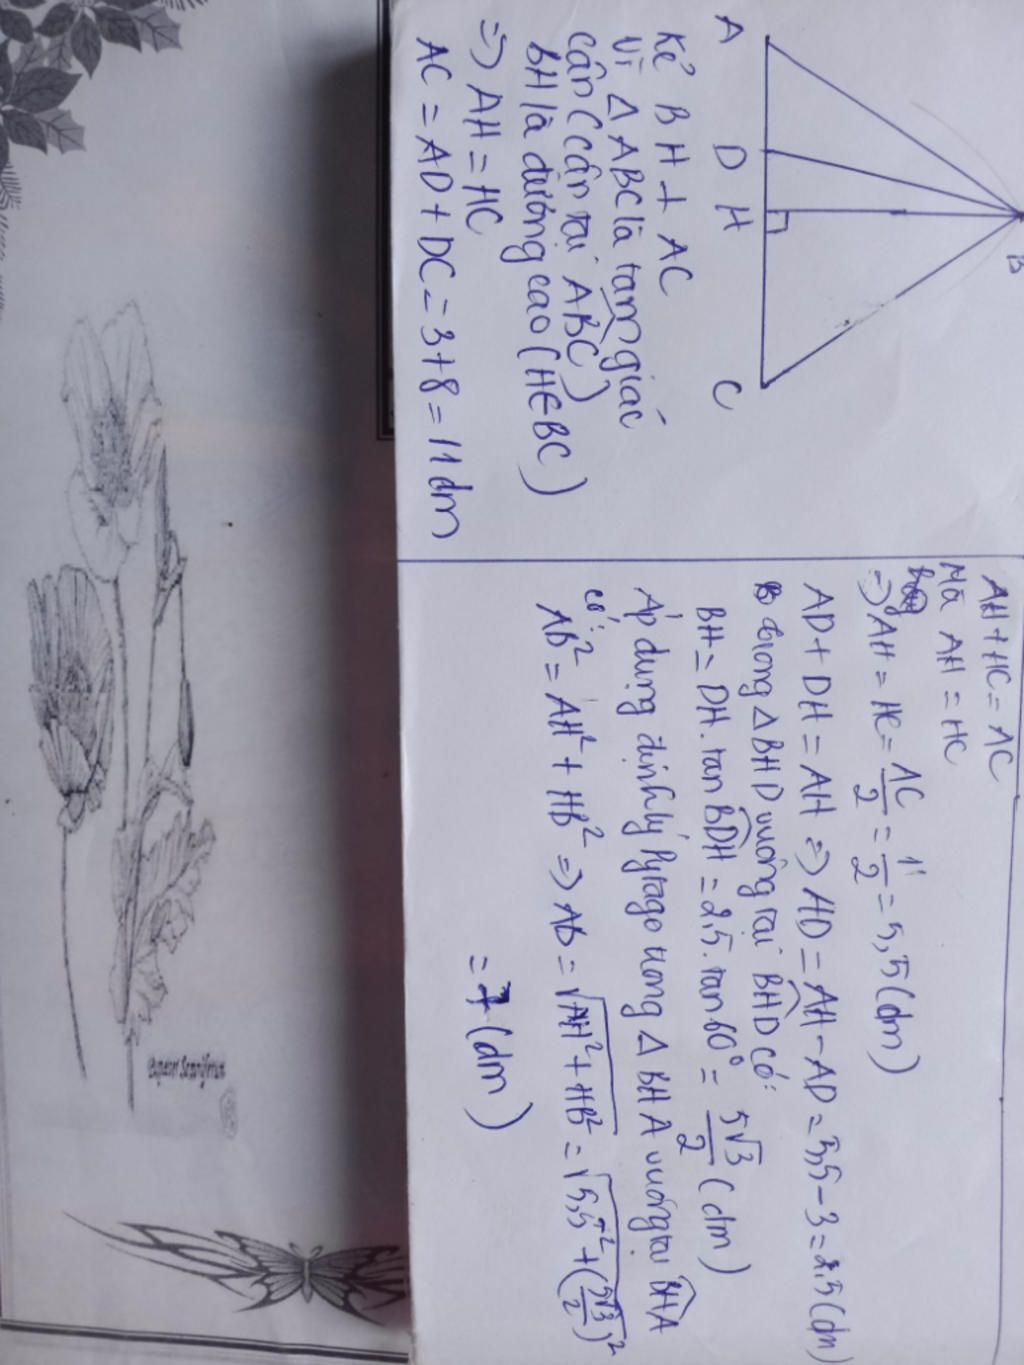 A
D
H
C
B
Kẻ BH ⊥ AC
Vì △ ABC là tam giác
cân (cân tại ABC)
BH là đường cao (H∈BC)
=> AH = HC
AC = AD + DC = 3 + 8 = 11 dm
AH + HC = AC
Mà AH = HC
=> AH = HC = AC/2 = 11/2 = 5,5 (dm)
AD + DH = AH => AD = AH - AD = 5,5 - 3 = 2,5 (dm)
trong △ BHD vuông tại BHD có:
BH = DH. tan BDH = 2,5. tan 60° = 5√3/2 (dm)
Áp dụng định lý Pytago trong △ BHA vuông tại BHA
có:
AB² = AH² + HB² => AB = √AH² + HB² = √5,5² + (5√3/2)²
= 7 (dm)